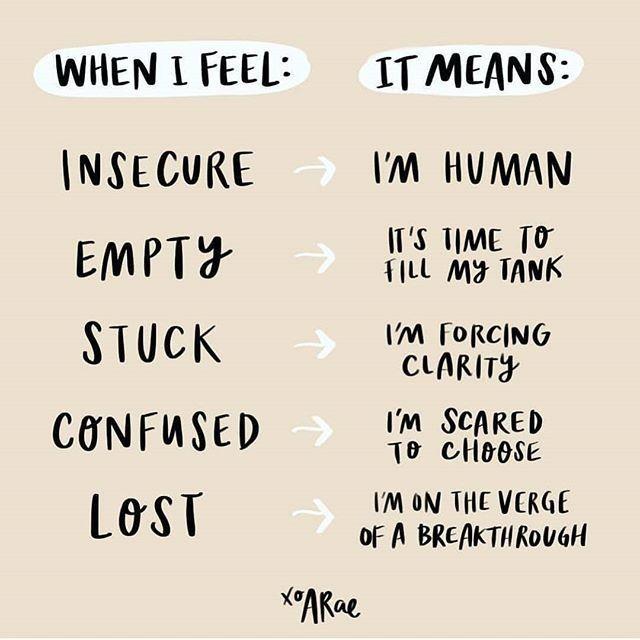 WHEN I FEEL: IT MEANS:
INSECURE → I'M HUMAN
EMPTY → IT'S TIME TO
FILL MY TANK
STUCK → I'M FORCING
CLARITY
CONFUSED → I'M SCARED
TO CHOOSE
LOST → I'M ON THE VERGE
OF A BREAKTHROUGH
xoARae